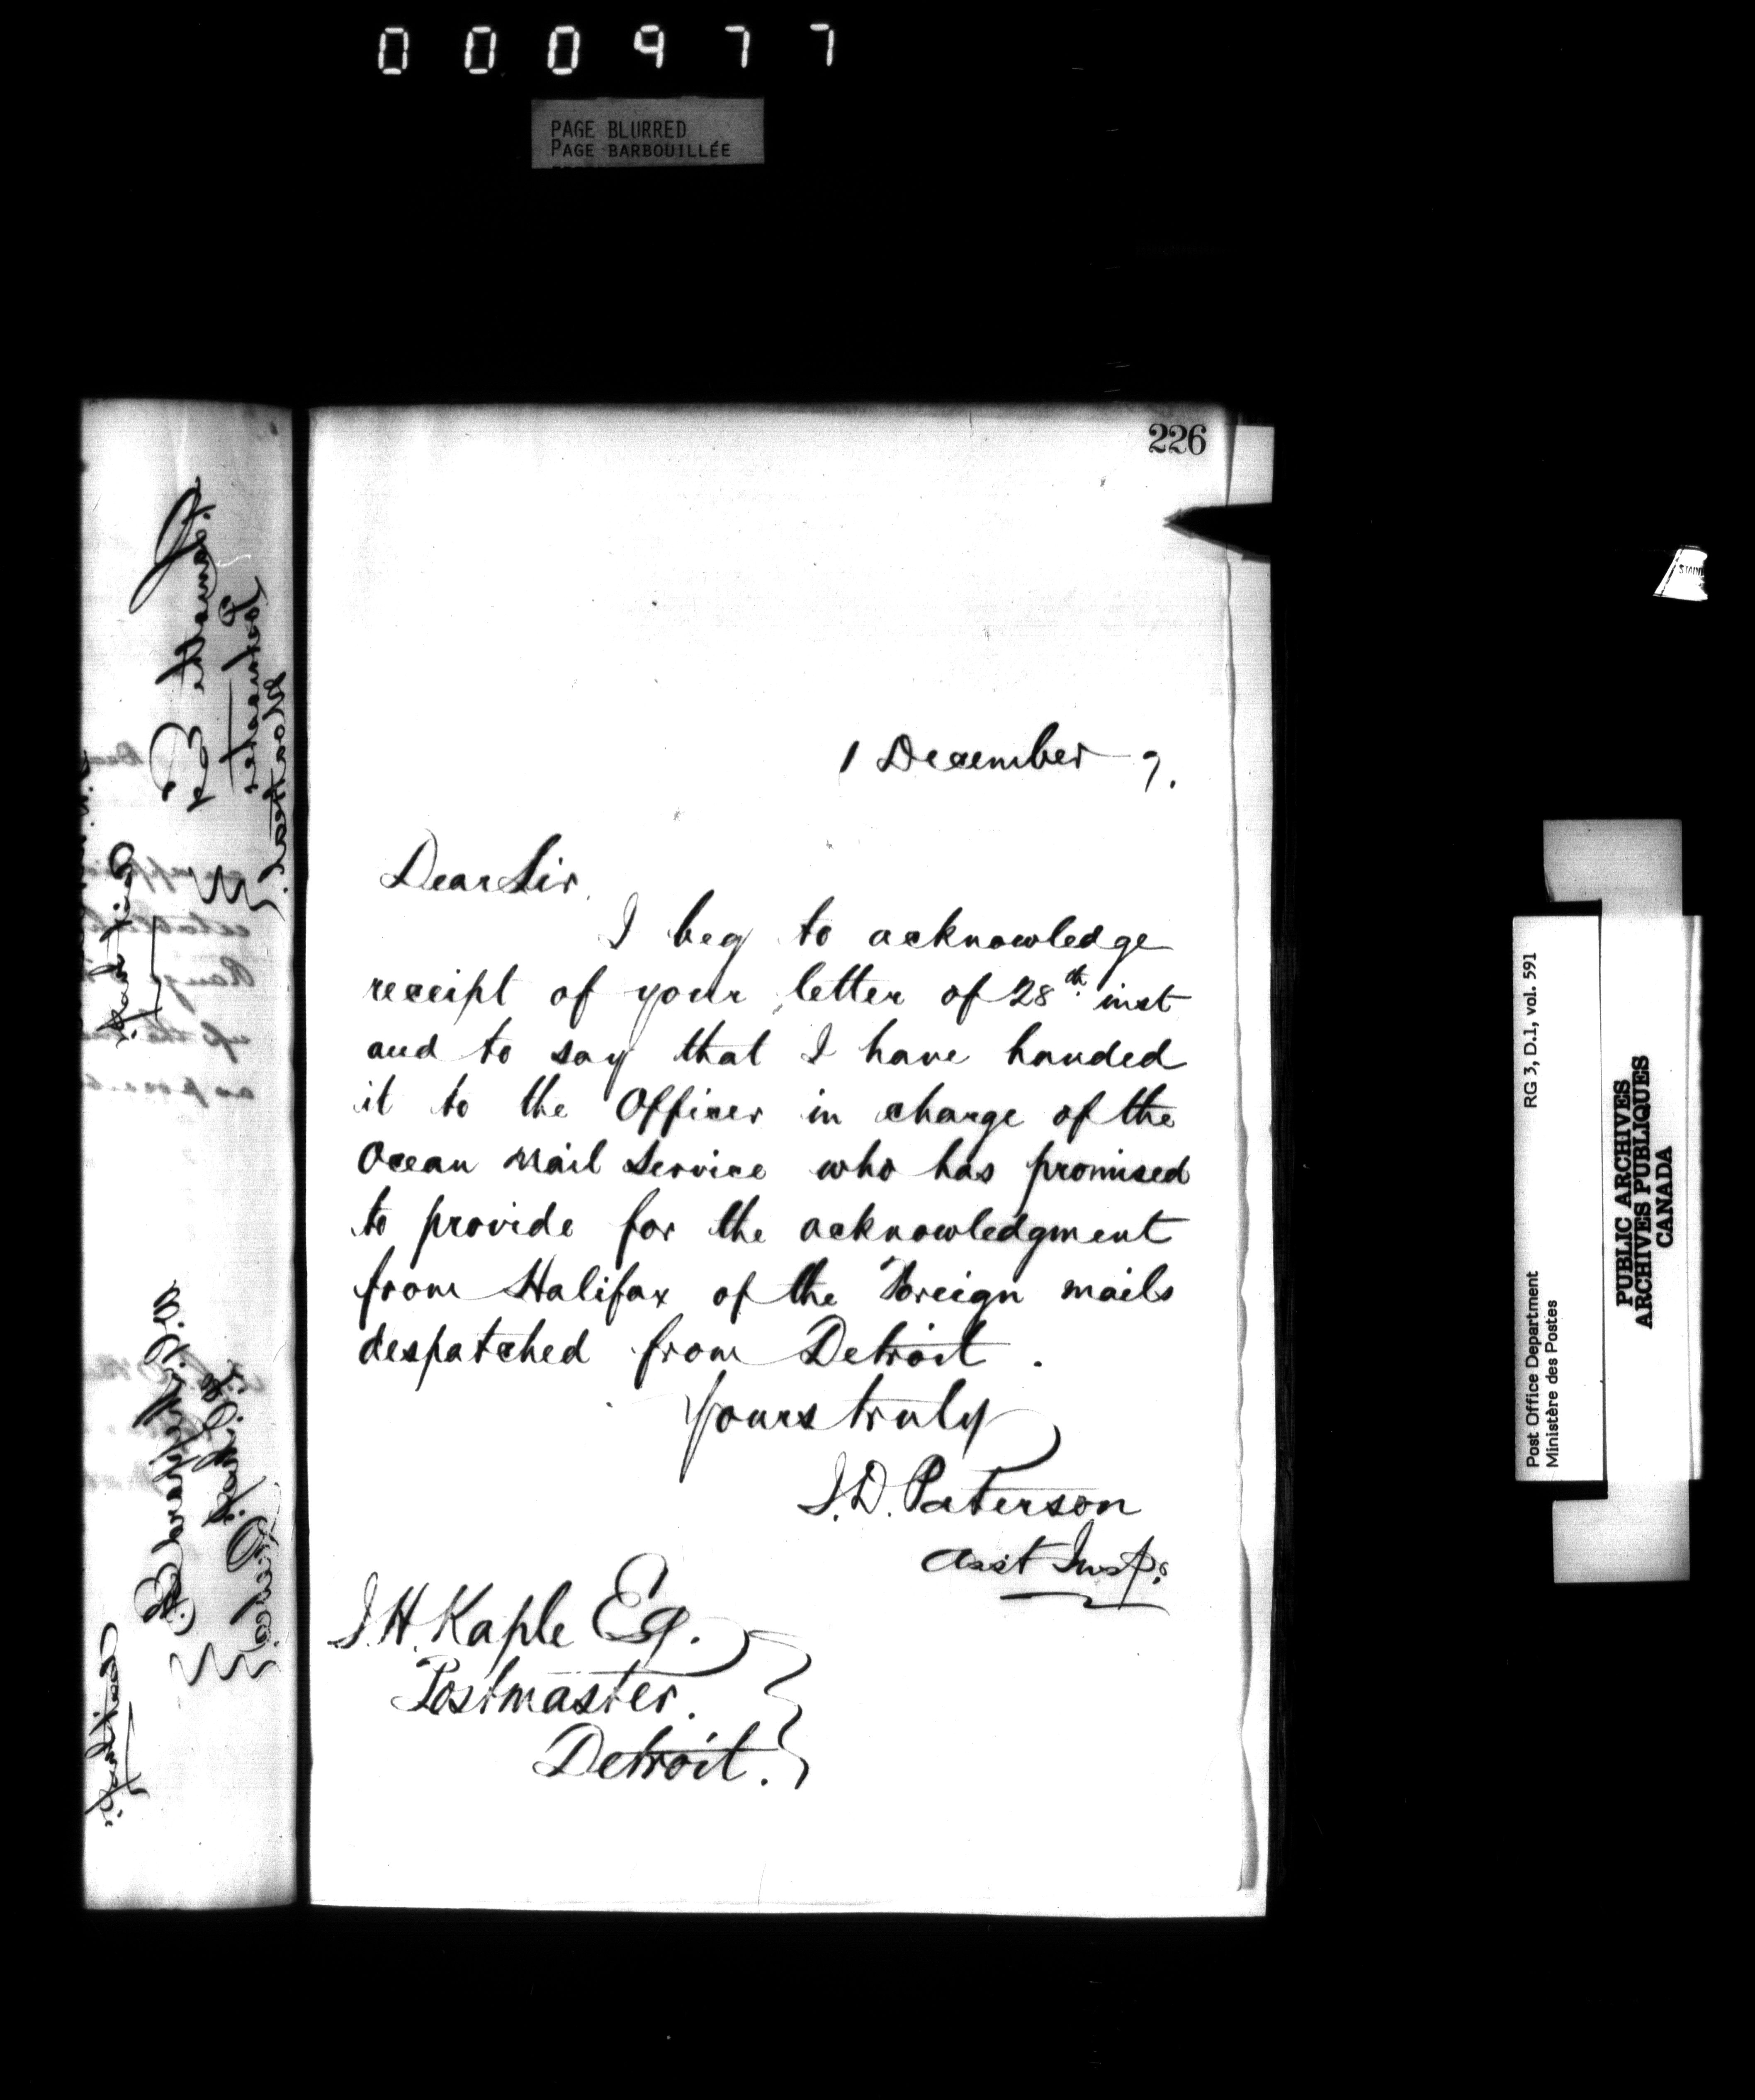 000977
PAGE BLURRED
PAGE BARBOUILLÉE
226
1 December 9.
Dear Sir,
I beg to acknowledge
receipt of your letter of 28th inst
and to say that I have handed
it to the Officer in charge of the
Ocean Mail Service who has promised
to provide for the acknowledgment
from Halifax of the Foreign mails
despatched from Detroit.
Yours truly
J.D. Paterson
Asst Insp.
J.H. Kaple Esq.
Postmaster.
Detroit.
Postmaster
Montreal.
Quebec
RG 3, D.1, vol. 591
Post Office Department
Ministère des Postes
PUBLIC ARCHIVES
ARCHIVES PUBLIQUES
CANADA